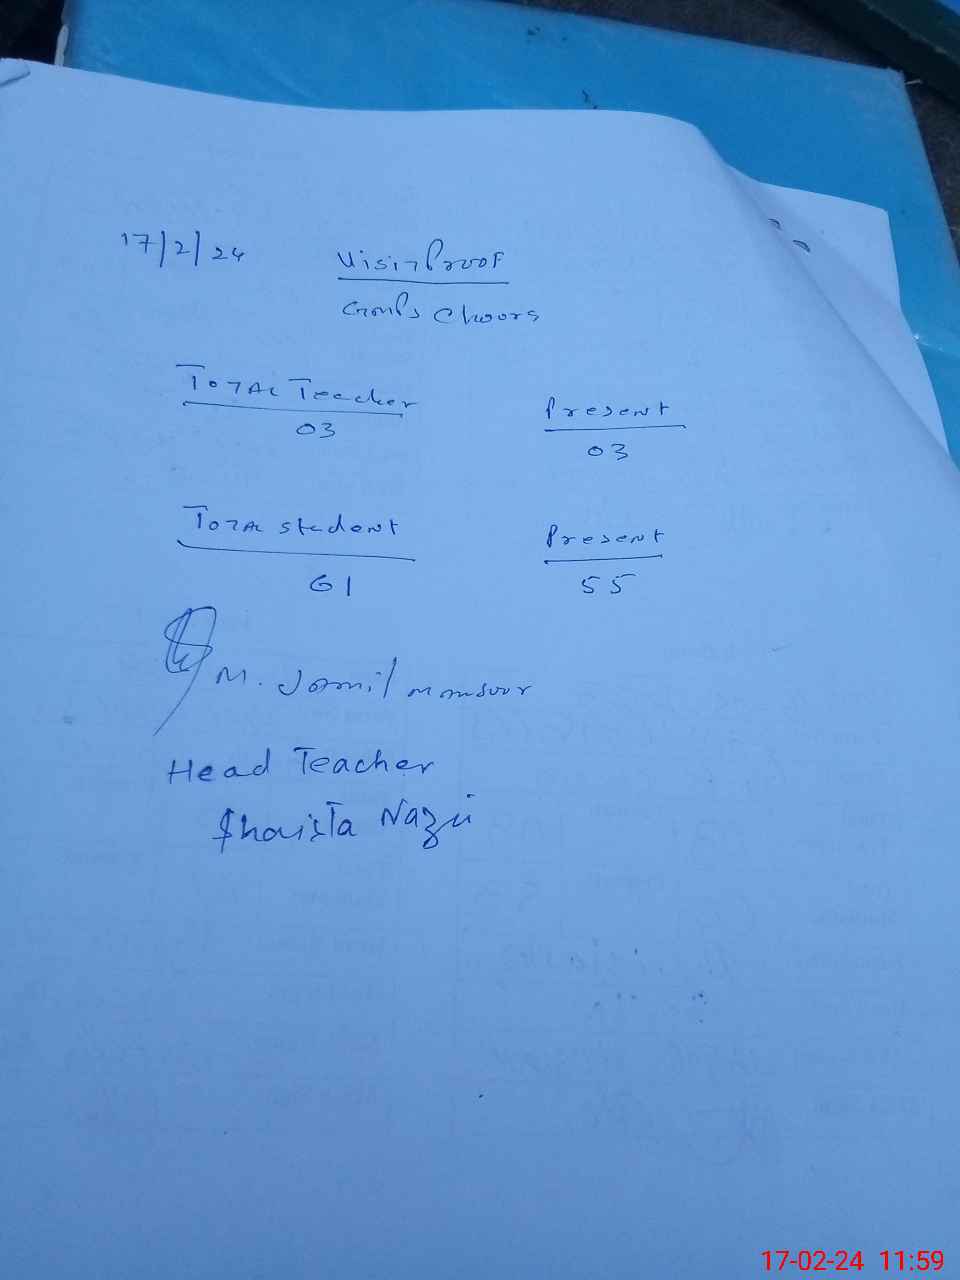 17/2/24 Visit Proof
GMPS Choora
Total Teacher Present
03 03
Total student Present
61 55
M. Jamil Mansoor
Head Teacher
Shaista Nazir
17-02-24 11:59